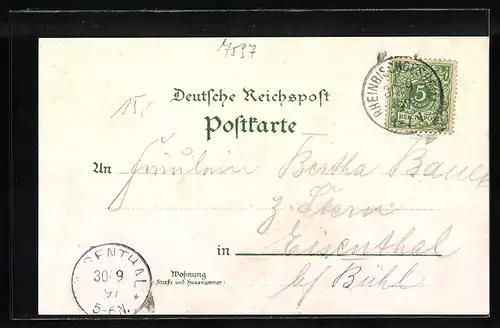 7597
15.-
Deutsche Reichspost
Postkarte
RHEINBISCHOFSH
5
REICHSPOST
An Fräulein Bertha Bauer
z. Stern
in Eisenthal
b/ Bühl
Wohnung
(Straße und Hausnummer)
ENTHAL
30/9
97
5-6N.